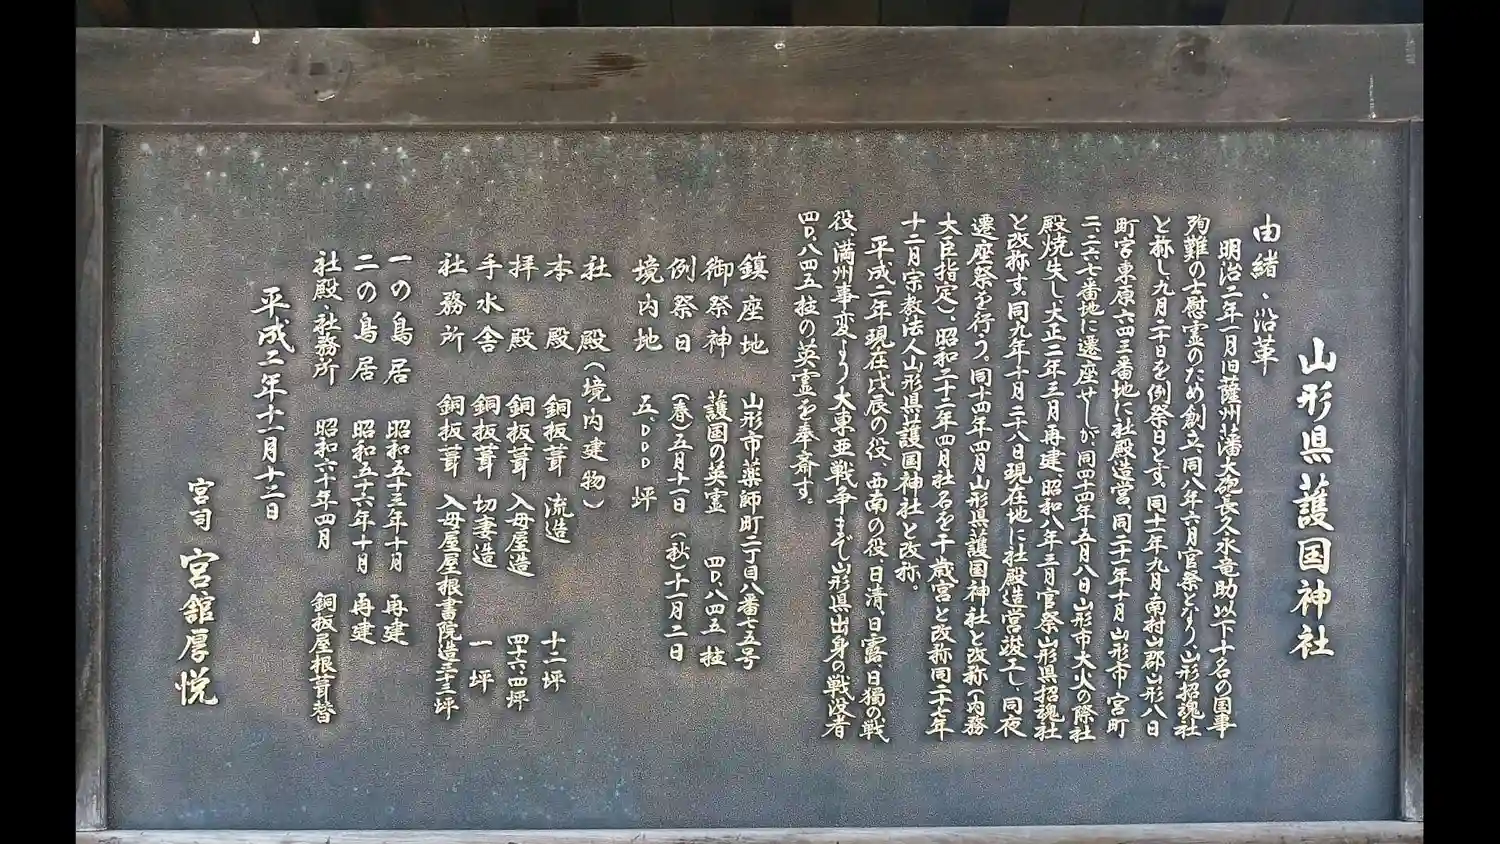 山形県護国神社
由緒、沿革
明治二年一月旧薩州藩大砲長久永竜助以下十名の国事
殉難の士慰霊のため創立、同八年六月官祭となり、山形招魂社
と称し九月二十日を例祭日とす。同十一年九月南村山郡山形八日
町宮東原六四三番地に社殿造営、同二十一年十月山形市宮町
二、二六七番地に遷座せしが、同四十四年五月八日山形市大火の際社
殿焼失し、大正二年三月再建、昭和八年三月官祭山形県招魂社
と改称す。同九年十月二十八日現在地に社殿造営竣工し、同夜
遷座祭を行う。同十四年四月山形県護国神社と改称(内務
大臣指定)、昭和二十二年四月社名を千歳宮と改称同二十七年
十二月宗教法人山形県護国神社と改称。
平成二年現在戊辰の役、西南の役、日清、日露、日獨の戦
役、満州事変より大東亜戦争まで山形県出身の戦没者
四〇、八四五柱の英霊を奉斎す。
鎮座地 山形市薬師町二丁目八番七五号
御祭神 護国の英霊 四〇、八四五 柱
例祭日 (春)五月十一日 (秋)十一月二日
境内地 五、〇〇〇 坪
社 殿(境内建物)
本 殿 銅板葺 流造 十二坪
拝 殿 銅板葺 入母屋造 四十六・四坪
手水舎 銅板葺 切妻造 一 坪
社務所 銅板葺 入母屋屋根書院造三十三坪
一の鳥居 昭和五十三年十月 再建
二の鳥居 昭和五十六年十月 再建
社殿、社務所 昭和六十年四月 銅板屋根葺替
平成二年十一月十二日
宮司 宮舘厚悦